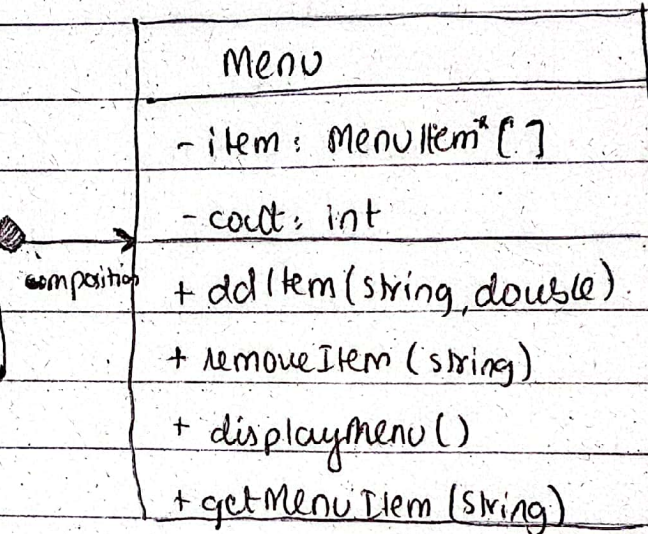 Menu
- item: MenuItem* []
- count: int
composition
+ addItem(string, double)
+ removeItem (string)
+ displayMenu()
+ getMenuItem (string)